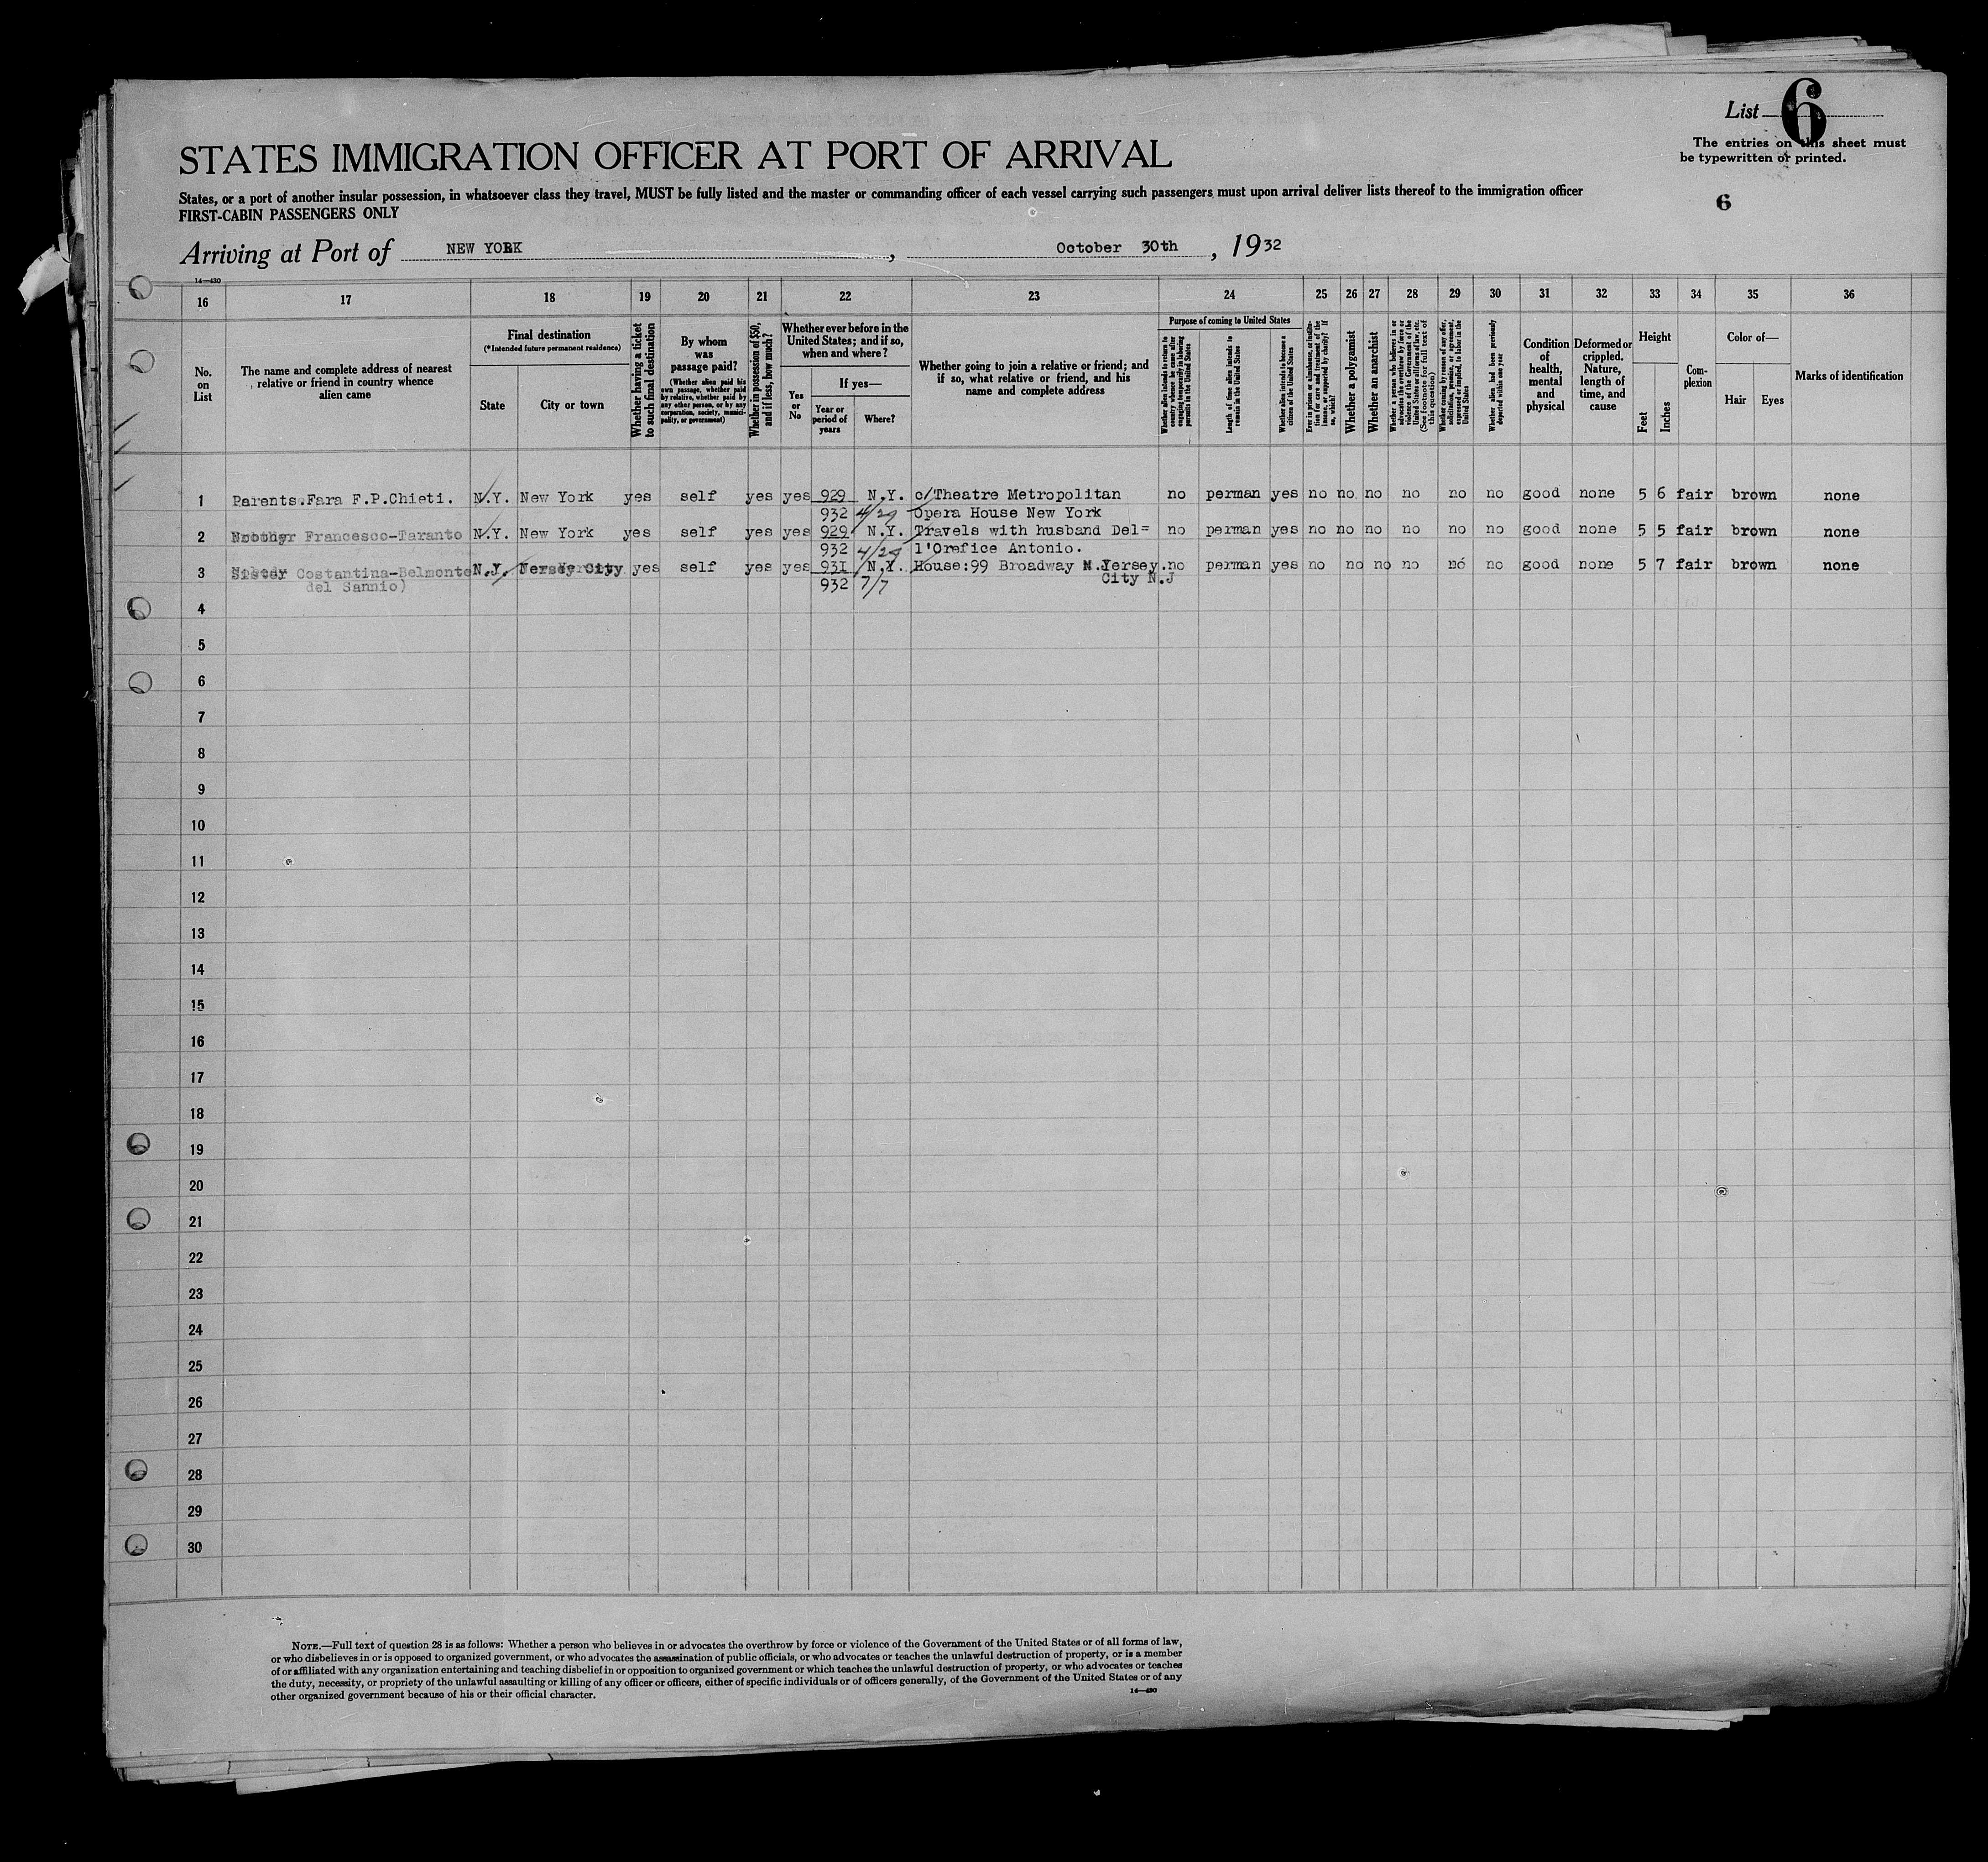 List 6
The entries on this sheet must
be typewritten or printed.
6
STATES IMMIGRATION OFFICER AT PORT OF ARRIVAL
States, or a port of another insular possession, in whatsoever class they travel, MUST be fully listed and the master or commanding officer of each vessel carrying such passengers must upon arrival deliver lists thereof to the immigration officer
FIRST-CABIN PASSENGERS ONLY
Arriving at Port of NEW YORK , October 30th , 1932
14—430
16 17 18 19 20 21 22 23 24 25 26 27 28 29 30 31 32 33 34 35 36
No.
on
List
The name and complete address of nearest
relative or friend in country whence
alien came
Final destination
(*Intended future permanent residence)
State
City or town
Whether having a ticket
to such final destination
By whom
was
passage paid?
(Whether alien paid his
own passage, whether paid
by relative, whether paid by
any other person, or by any
corporation, society, munici-
pality, or government)
Whether in possession of $50,
and if less, how much?
Whether ever before in the
United States; and if so,
when and where?
Yes
or
No
If yes—
Year or
period of
years
Where?
Whether going to join a relative or friend; and
if so, what relative or friend, and his
name and complete address
Purpose of coming to United States
Whether alien intends to return to
country whence he came after
engaging temporarily in laboring
pursuits in the United States
Length of time alien intends to
remain in the United States
Whether alien intends to become a
citizen of the United States
Ever in prison or almshouse, or institu-
tion for care and treatment of the
insane, or supported by charity? If
so, which?
Whether a polygamist
Whether an anarchist
Whether a person who believes in or
advocates the overthrow by force or
violence of the Government of the
United States or all forms of law, etc.
(See footnote for full text of
this question)
Whether coming by reason of any offer,
solicitation, promise, or agreement,
expressed or implied, to labor in the
United States
Whether alien had been previously
deported within one year
Condition
of
health,
mental
and
physical
Deformed or
crippled.
Nature,
length of
time, and
cause
Height
Feet
Inches
Com-
plexion
Color of—
Hair
Eyes
Marks of identification
1 Parents.Fara F.P.Chieti. N.Y. New York yes self yes yes 929 N.Y. c/Theatre Metropolitan no perman yes no no no no no no good none 5 6 fair brown none
932 4/29 Opera House New York
2 Francesco-Taranto N.Y. New York yes self yes yes 929 N.Y. Travels with husband Del= no perman yes no no no no no no good none 5 5 fair brown none
932 4/29 l'Orefice Antonio.
3 Sister Costantina-Belmonte N.Y. Jersey City yes self yes yes 931 N.Y. House:99 Broadway N.Jersey. no perman yes no no no no no no good none 5 7 fair brown none
del Sannio) 932 7/7 City N.J
4
5
6
7
8
9
10
11
12
13
14
15
16
17
18
19
20
21
22
23
24
25
26
27
28
29
30
NOTE.—Full text of question 28 is as follows: Whether a person who believes in or advocates the overthrow by force or violence of the Government of the United States or of all forms of law,
or who disbelieves in or is opposed to organized government, or who advocates the assassination of public officials, or who advocates or teaches the unlawful destruction of property, or is a member
of or affiliated with any organization entertaining and teaching disbelief in or opposition to organized government or which teaches the unlawful destruction of property, or who advocates or teaches
the duty, necessity, or propriety of the unlawful assaulting or killing of any officer or officers, either of specific individuals or of officers generally, of the Government of the United States or of any
other organized government because of his or their official character.
14—430